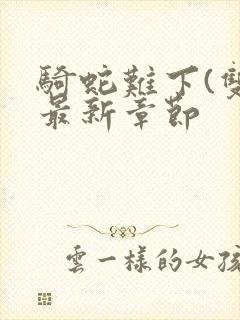 騎蛇難下(雙
最新章節
雲一樣的女孩